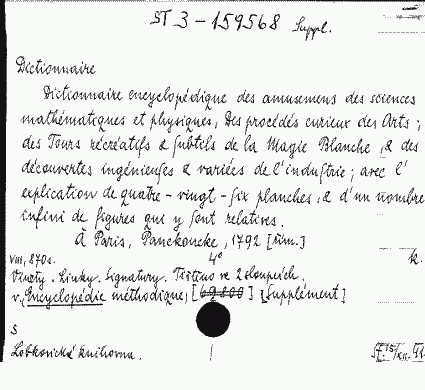 ST 3 - 159568 Suppl.
Dictionnaire
Dictionnaire encyclopédique des amusemens des sciences
mathématiques et physiques, Des procédés curieux des Arts;
des Tours récréatifs & subtils de la Magie Blanche, & des
découvertes ingénieuses & variées de l'industrie; avec l'
explication de quatre-vingt-six planches, & d'un nombre
infini de figures qui y sont relatives.
À Paris, Panckoucke, 1792 [řím.]
VIII, 870 s. 4° k.
Viněty. Linky. Signatury. Tištěno ve 2 sloupcích.
v. Encyclopédie méthodique, [69800] [Supplément]
S
Lobkovická knihovna.